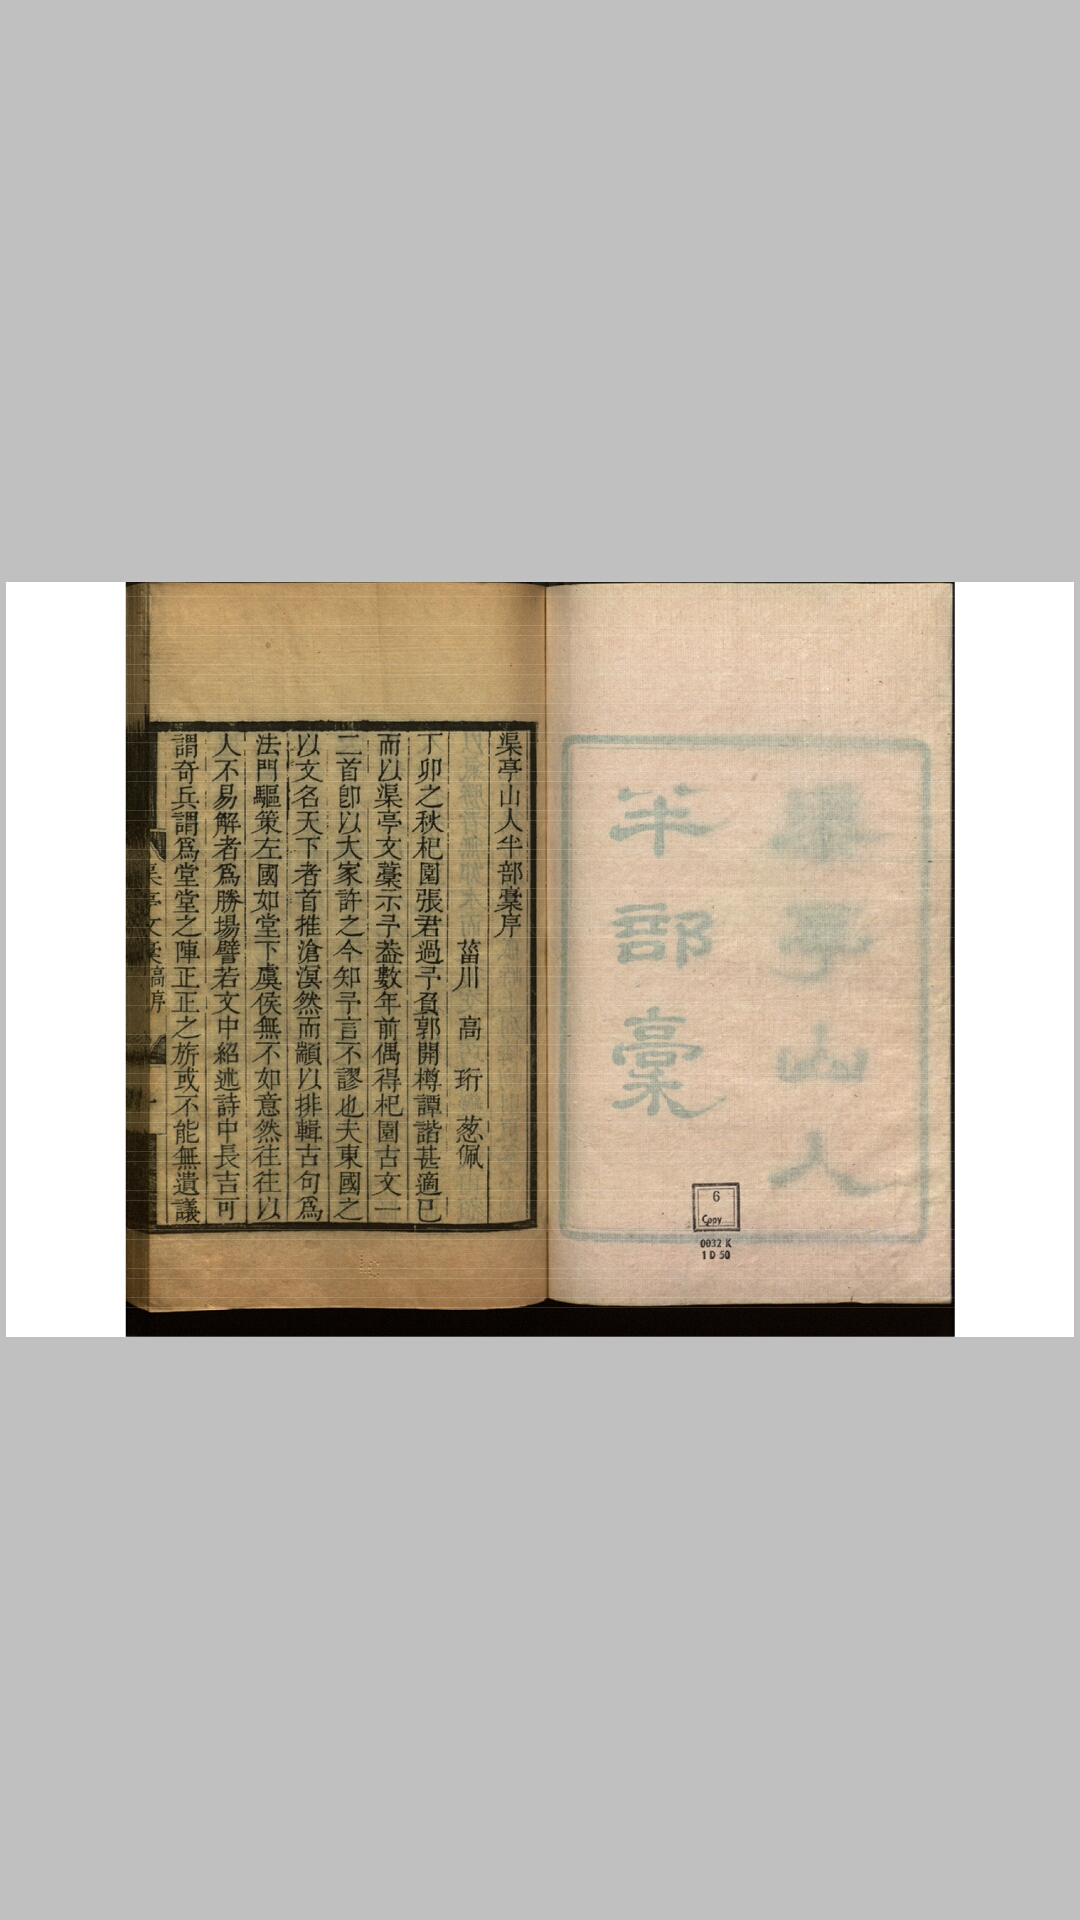 渠亭山人
半部稾
6
Copy
0032 K
1 D 50
渠亭山人半部稾序
菑川 高 珩 葱佩
丁卯之秋杞園張君過予負郭開樽譚諧甚適已
而以渠亭文藁示予葢數年前偶得杞園古文一
二首卽以大家許之今知予言不謬也夫東國之
以文名天下者首推滄溟然而顓以排輯古句爲
法門驅策左國如堂下虞侯無不如意然往往以
人不易解者爲勝場譬若文中紹述詩中長吉可
謂奇兵謂爲堂堂之陣正正之旂或不能無遺議
渠亭文稾 序